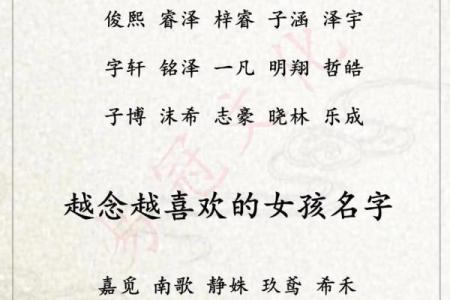 俊熙 睿泽 梓睿 子涵 泽宇
字轩 铭泽 一凡 明翔 哲皓
子博 沫希 志豪 晓林 乐成
越念越喜欢的女孩名字
嘉觅 南歌 静姝 玖鸢 希禾